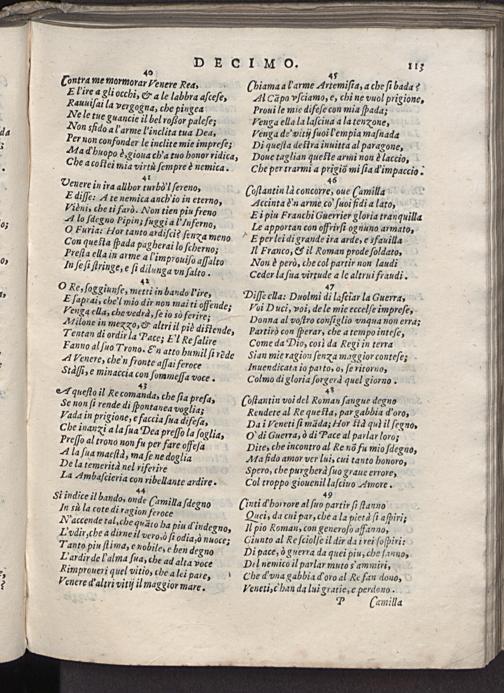 DECIMO. 113
40
Contra me mormorar Venere Rea,
E l'ire a gli occhi, & a le labbra ascese,
Rauuisai la vergogna, che pingea
Ne le tue guancie il bel rossor palese;
Non sfido a l'arme l'inclita tua Dea,
Per non confonder le inclite mie imprese;
Ma d'huopo è, gioua ch'a tuo honor ridica,
Che a costei mia virtù sempre è nemica.
41
Venere in ira allhor turbò'l sereno,
E disse: A te nemica anch'io in eterno,
Vièni, che ti farò. Non tien piu freno
A lo sdegno Pipin; fuggi a l'Inferno,
O Furia: Hor tanto ardisci? senza meno
Con questa spada pagherai lo scherno;
Presta ella in arme a l'improuiso assalto
In se si stringe, e si dilunga vn salto.
42
O Re, soggiunse, metti in bando l'ire,
E saprai, che'l mio dir non mai ti offende;
Venga ella, che vedrà, se io sò ferire;
Milone in mezzo, & altri il piè distende,
Tentan di ordir la Pace; E'l Re salire
Fanno al suo Trono. E'n atto humil si rède
A Venere, che'n fronte assai feroce
Stàssi, e minaccia con sommessa voce.
43
A questo il Re comanda, che sia presa,
Se non si rende di spontanea voglia;
Vada in prigione, e faccia sua difesa,
Che inanzi a la sua Dea presso la soglia,
Presso al trono non fu per fare offesa
A la sua maestà, ma se ne doglia
De la temerità nel riferire
La Ambascieria con ribellante ardire.
44
Si indice il bando, onde Camilla sdegno
In sù la cote di ragion feroce
N'accende tal, che quàto ha piu d'indegno,
L'vdir, che a dirne il vero, ò si odia, ò nuoce;
Tanto piu stima, e nobile, e ben degno
L'ardir de l'alma sua, che ad alta voce
Rimproueri quel vitio, che a lei pare,
Venere d'altri vitij il maggior mare.
45
Chiama a l'arme Artemisia, a che si bada?
Al Càpo vsciamo, e, chi ne vuol prigione,
Proui le mie difese con mia spada;
Venga ella la lasciua a la tenzone,
Venga de' vitij suoi l'empia masnada
Di questa destra inuitta al paragone,
Doue taglian queste armi non è laccio,
Che per trarmi a prigiō mi sia d'impaccio.
46
Costantin là concorre, oue Camilla
Accinta è'n arme co' suoi fidi a lato,
E i piu Franchi Guerrier gloria tranquilla
Le apportan con offrirsi ognuno armato,
E per lei di grande ira arde, e sfauilla
Il Franco, & il Roman prode soldato,
Non è però, che col partir non laudi
Ceder la sua virtude a le altrui fraudi.
47
Disse ella: Duolmi di lasciar la Guerra,
Voi Duci, voi, de le mie eccelse imprese,
Donna al vostro consiglio vnqua non erra;
Partirò con sperar, che a tempo intese,
Come da Dio, così da Regi in terra
Sian mie ragion senza maggior contese;
Inuendicata io parto, o, se ritorno,
Colmo di gloria sorgerà quel giorno.
48
Costantin voi del Roman sangue degno
Rendete al Re questa, par gabbia d'oro,
Da i Veneti si màda; Hor stà quì il segno,
O' di Guerra, ò di Pace al parlar loro;
Dite, che incontro al Re nō fu mio sdegno,
Ma fido amor ver lui, cui tanto honoro,
Spero, che purgherà suo graue errore,
Col troppo giouenil lasciuo Amore.
49
Cinti d'horrore al suo partir si stanno
Quei, da cui par, che a la pietà si aspiri;
Il pio Roman, con generoso affanno,
Giunto al Re sciolse il dir da i rei sospiri:
Di pace, ò guerra da quei piu, che sanno,
Del nemico il parlar muto s'ammiri,
Che d'vna gabbia d'oro al Re fan dono,
Veneti, c'han da lui gratie, e perdono.
P Camilla